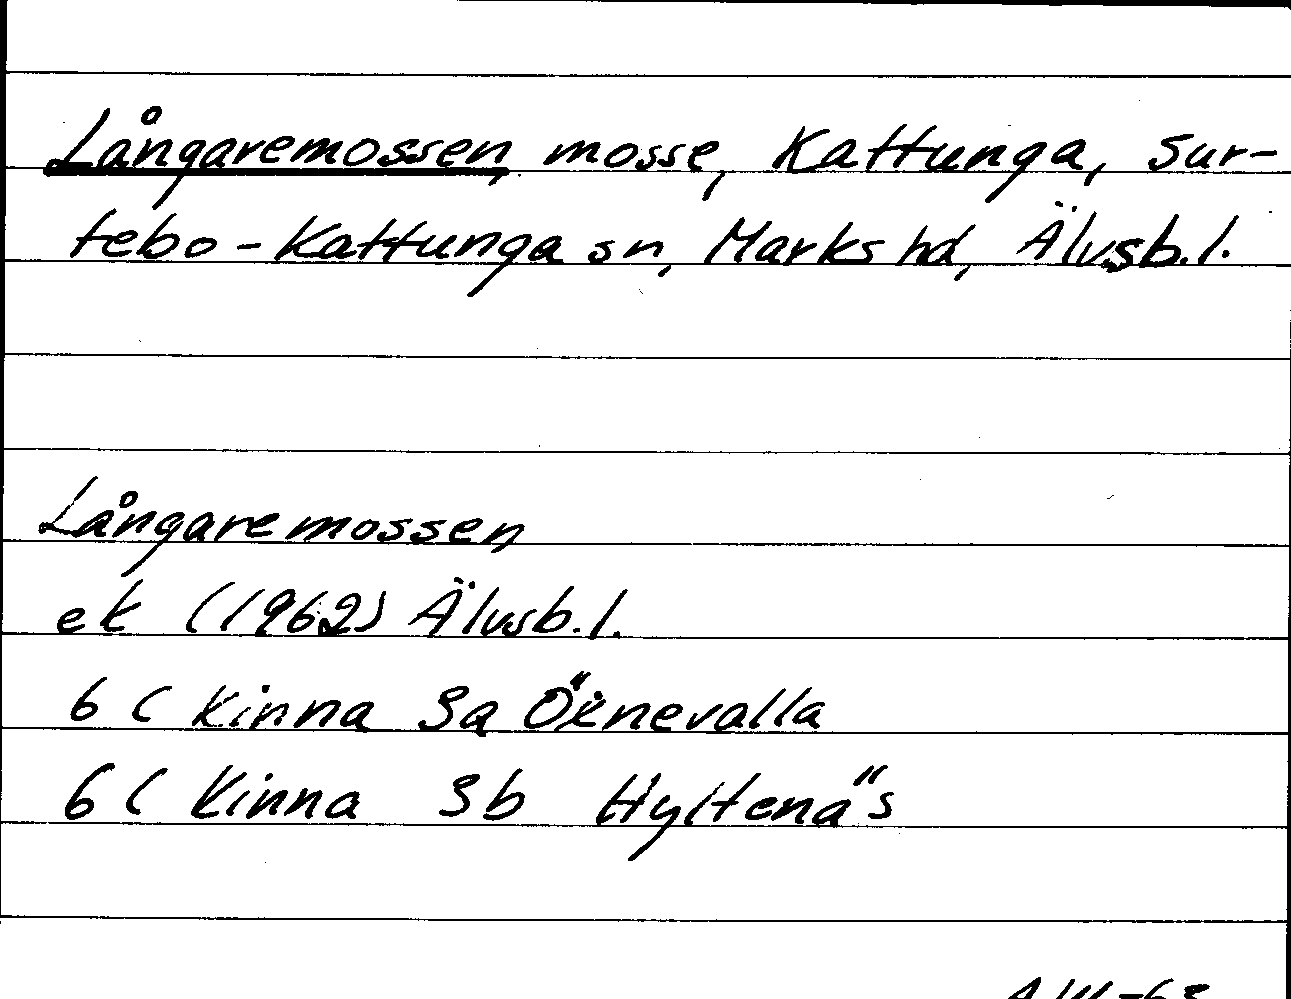 Långaremossen, mosse, Kattunga, Sur-
tebo-Kattunga sn, Marks hd, Älvsb.l.
Långaremossen
ek (1962) Älvsb.l.
6 C Kinna 3a Öxnevalla
6 C Kinna 3b Hyltenäs